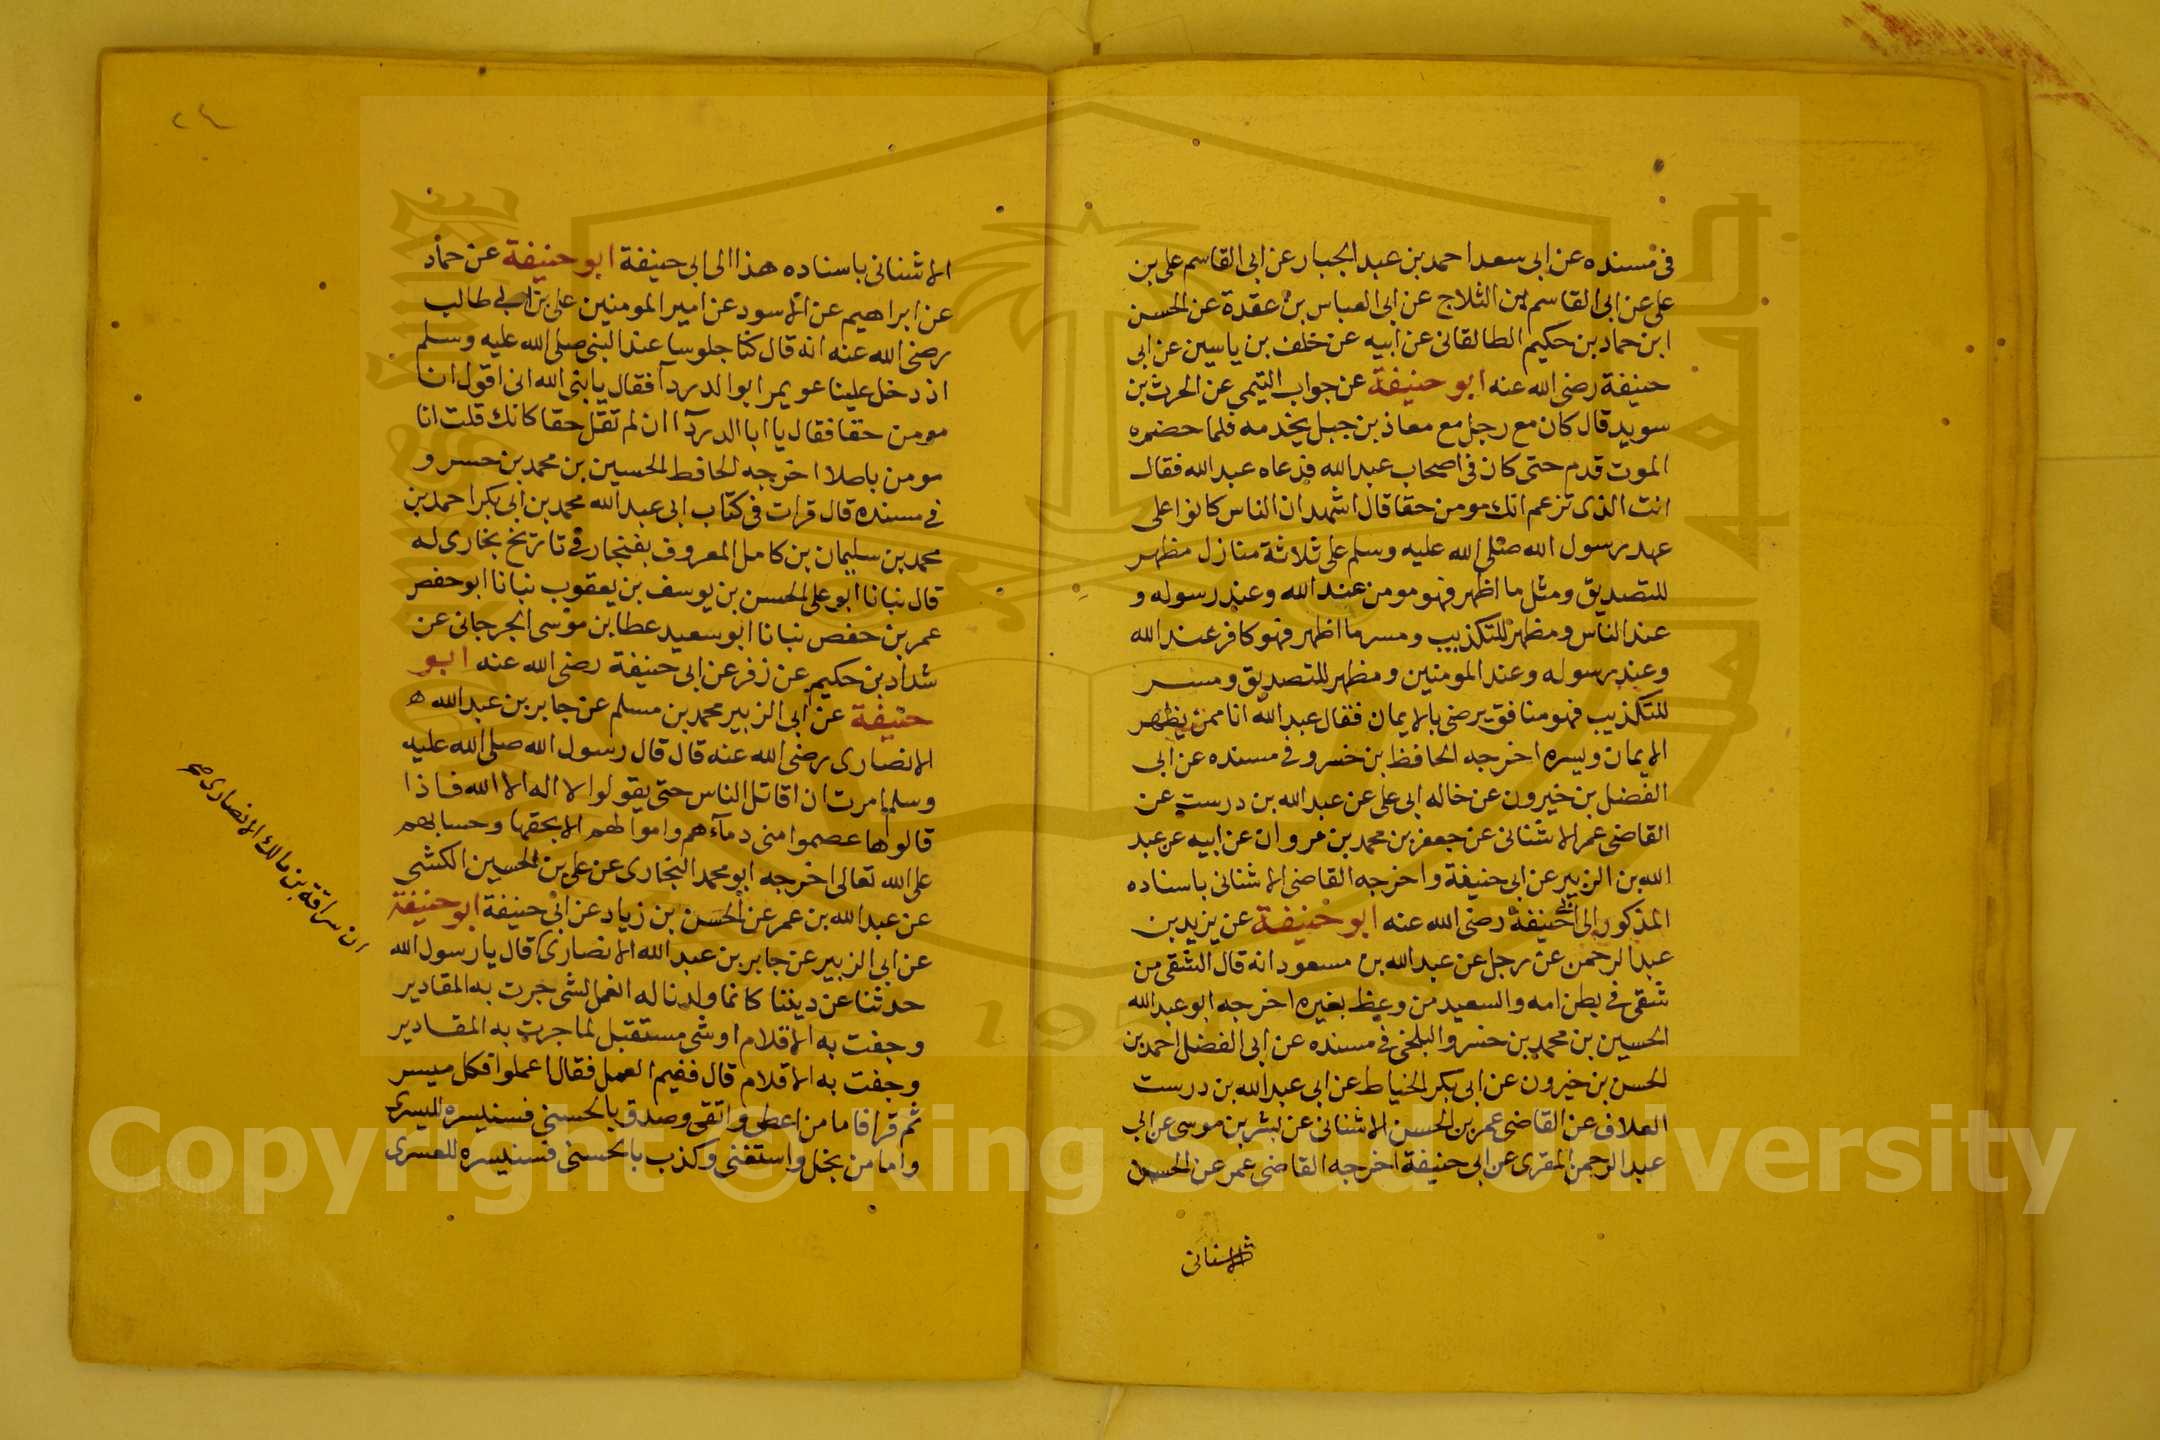 فى مسنده عن ابى سعد احمد بن عبد الجبار عن ابى القاسم على بن
على عن ابى القاسم بن الثلاج عن ابى العباس بن عقدة عن الحسن
ابن حماد بن حكيم الطالقانى عن ابيه عن خلف بن ياسين عن ابى
حنيفة رضى الله عنه ابو حنيفة عن جواب التيمى عن الحرث بن
سويد قال كان مع رجل مع معاذ بن جبل يخدمه فلما حضره
الموت قدم حتى كان فى اصحاب عبد الله فدعاه عبد الله فقال
انت الذى تزعم انك مومن حقا قال اشهد ان الناس كانوا على
عهد رسول الله صلى الله عليه وسلم على ثلاثة منازل مظهر
للتصديق ومثل ما اظهر فهو مومن عند الله وعند رسوله و
عند الناس ومظهر للتكذيب ومسر ما اظهر فهو كافر عند الله
وعند رسوله وعند المومنين ومظهر للتصديق ومسر
للتكذيب فهو منافق يرضى بالايمان فقال عبد الله انا ممن يظهر
الايمان ويسره اخرجه الحافظ بن خسرو فى مسنده عن ابى
الفضل بن خيرون عن خاله ابى على عن عبد الله بن درست عن
القاضى عمر الاشنانى عن جعفر بن محمد بن مروان عن ابيه عن عبد
الله بن الزبير عن ابى حنيفة واخرجه القاضى الاشنانى باسناده
المذكور الى ابى حنيفة رضى الله عنه ابو حنيفة عن يزيد بن
عبد الرحمن عن رجل عن عبد الله بن مسعود انه قال الشقى من
شقى فى بطن امه والسعيد من وعظ بغيره اخرجه ابو عبد الله
الحسين بن محمد بن خسرو البلخى فى مسنده عن ابى الفضل احمد بن
الحسن بن خيرون عن ابى بكر الخياط عن ابى عبد الله بن درست
العلاف عن القاضى عمر بن الحسن الاشنانى عن بشر بن موسى عن ابى
عبد الرحمن المقرى عن ابى حنيفة اخرجه القاضى عمر عن الحسن
الاشنانى
٢٤
الاشنانى باسناده هذا الى ابى حنيفة ابو حنيفة عن حماد
عن ابراهيم عن الاسود عن امير المومنين على بن ابى طالب
رضى الله عنه انه قال كنا جلوسا عند النبى صلى الله عليه وسلم
اذ دخل علينا عويمر ابو الدردآ فقال يا نبى الله انى اقول انا
مومن حقا فقال يا ابا الدردآ ان لم تقل حقا كانك قلت انا
مومن باصلا اخرجه الحافظ الحسين بن محمد بن خسرو
فى مسنده قال قرات فى كتاب ابى عبد الله محمد بن ابى بكر احمد بن
محمد بن سليمان بن كامل المعروف بغنجار فى تاريخ بخارى له
قال نبانا ابو على الحسن بن يوسف بن يعقوب نبانا ابو حفص
عمر بن حفص نبانا ابو سعيد عطا بن موسى الجرجانى عن
شداد بن حكيم عن زفر عن ابى حنيفة رضى الله عنه ابو
حنيفة عن ابى الزبير محمد بن مسلم عن جابر بن عبد الله
الانصارى رضى الله عنه قال قال رسول الله صلى الله عليه
وسلم امرت ان اقاتل الناس حتى يقولوا لا اله الا الله فاذا
قالوها عصموا منى دمآءهم واموالهم الا بحقها وحسابهم
على الله تعالى اخرجه ابو محمد البخارى عن على بن الحسين الكشى
عن عبد الله بن عمر عن الحسن بن زياد عن ابى حنيفة ابو حنيفة
عن ابى الزبير عن جابر بن عبد الله الانصارى قال يا رسول الله
حدثنا عن ديننا كانما ولدنا له انعمل لشى جرت به المقادير
وجفت به الاقلام او شى مستقبل لما جرت به المقادير
وجفت به الاقلام قال ففيم العمل فقال اعملوا فكل ميسر
ثم قرا فاما من اعطى واتقى وصدق بالحسنى فسنيسره لليسرى
واما من بخل واستغنى وكذب بالحسنى فسنيسره للعسرى
ان سراقة بن مالك الانصارى صح
1957
Copyright © King Saud University